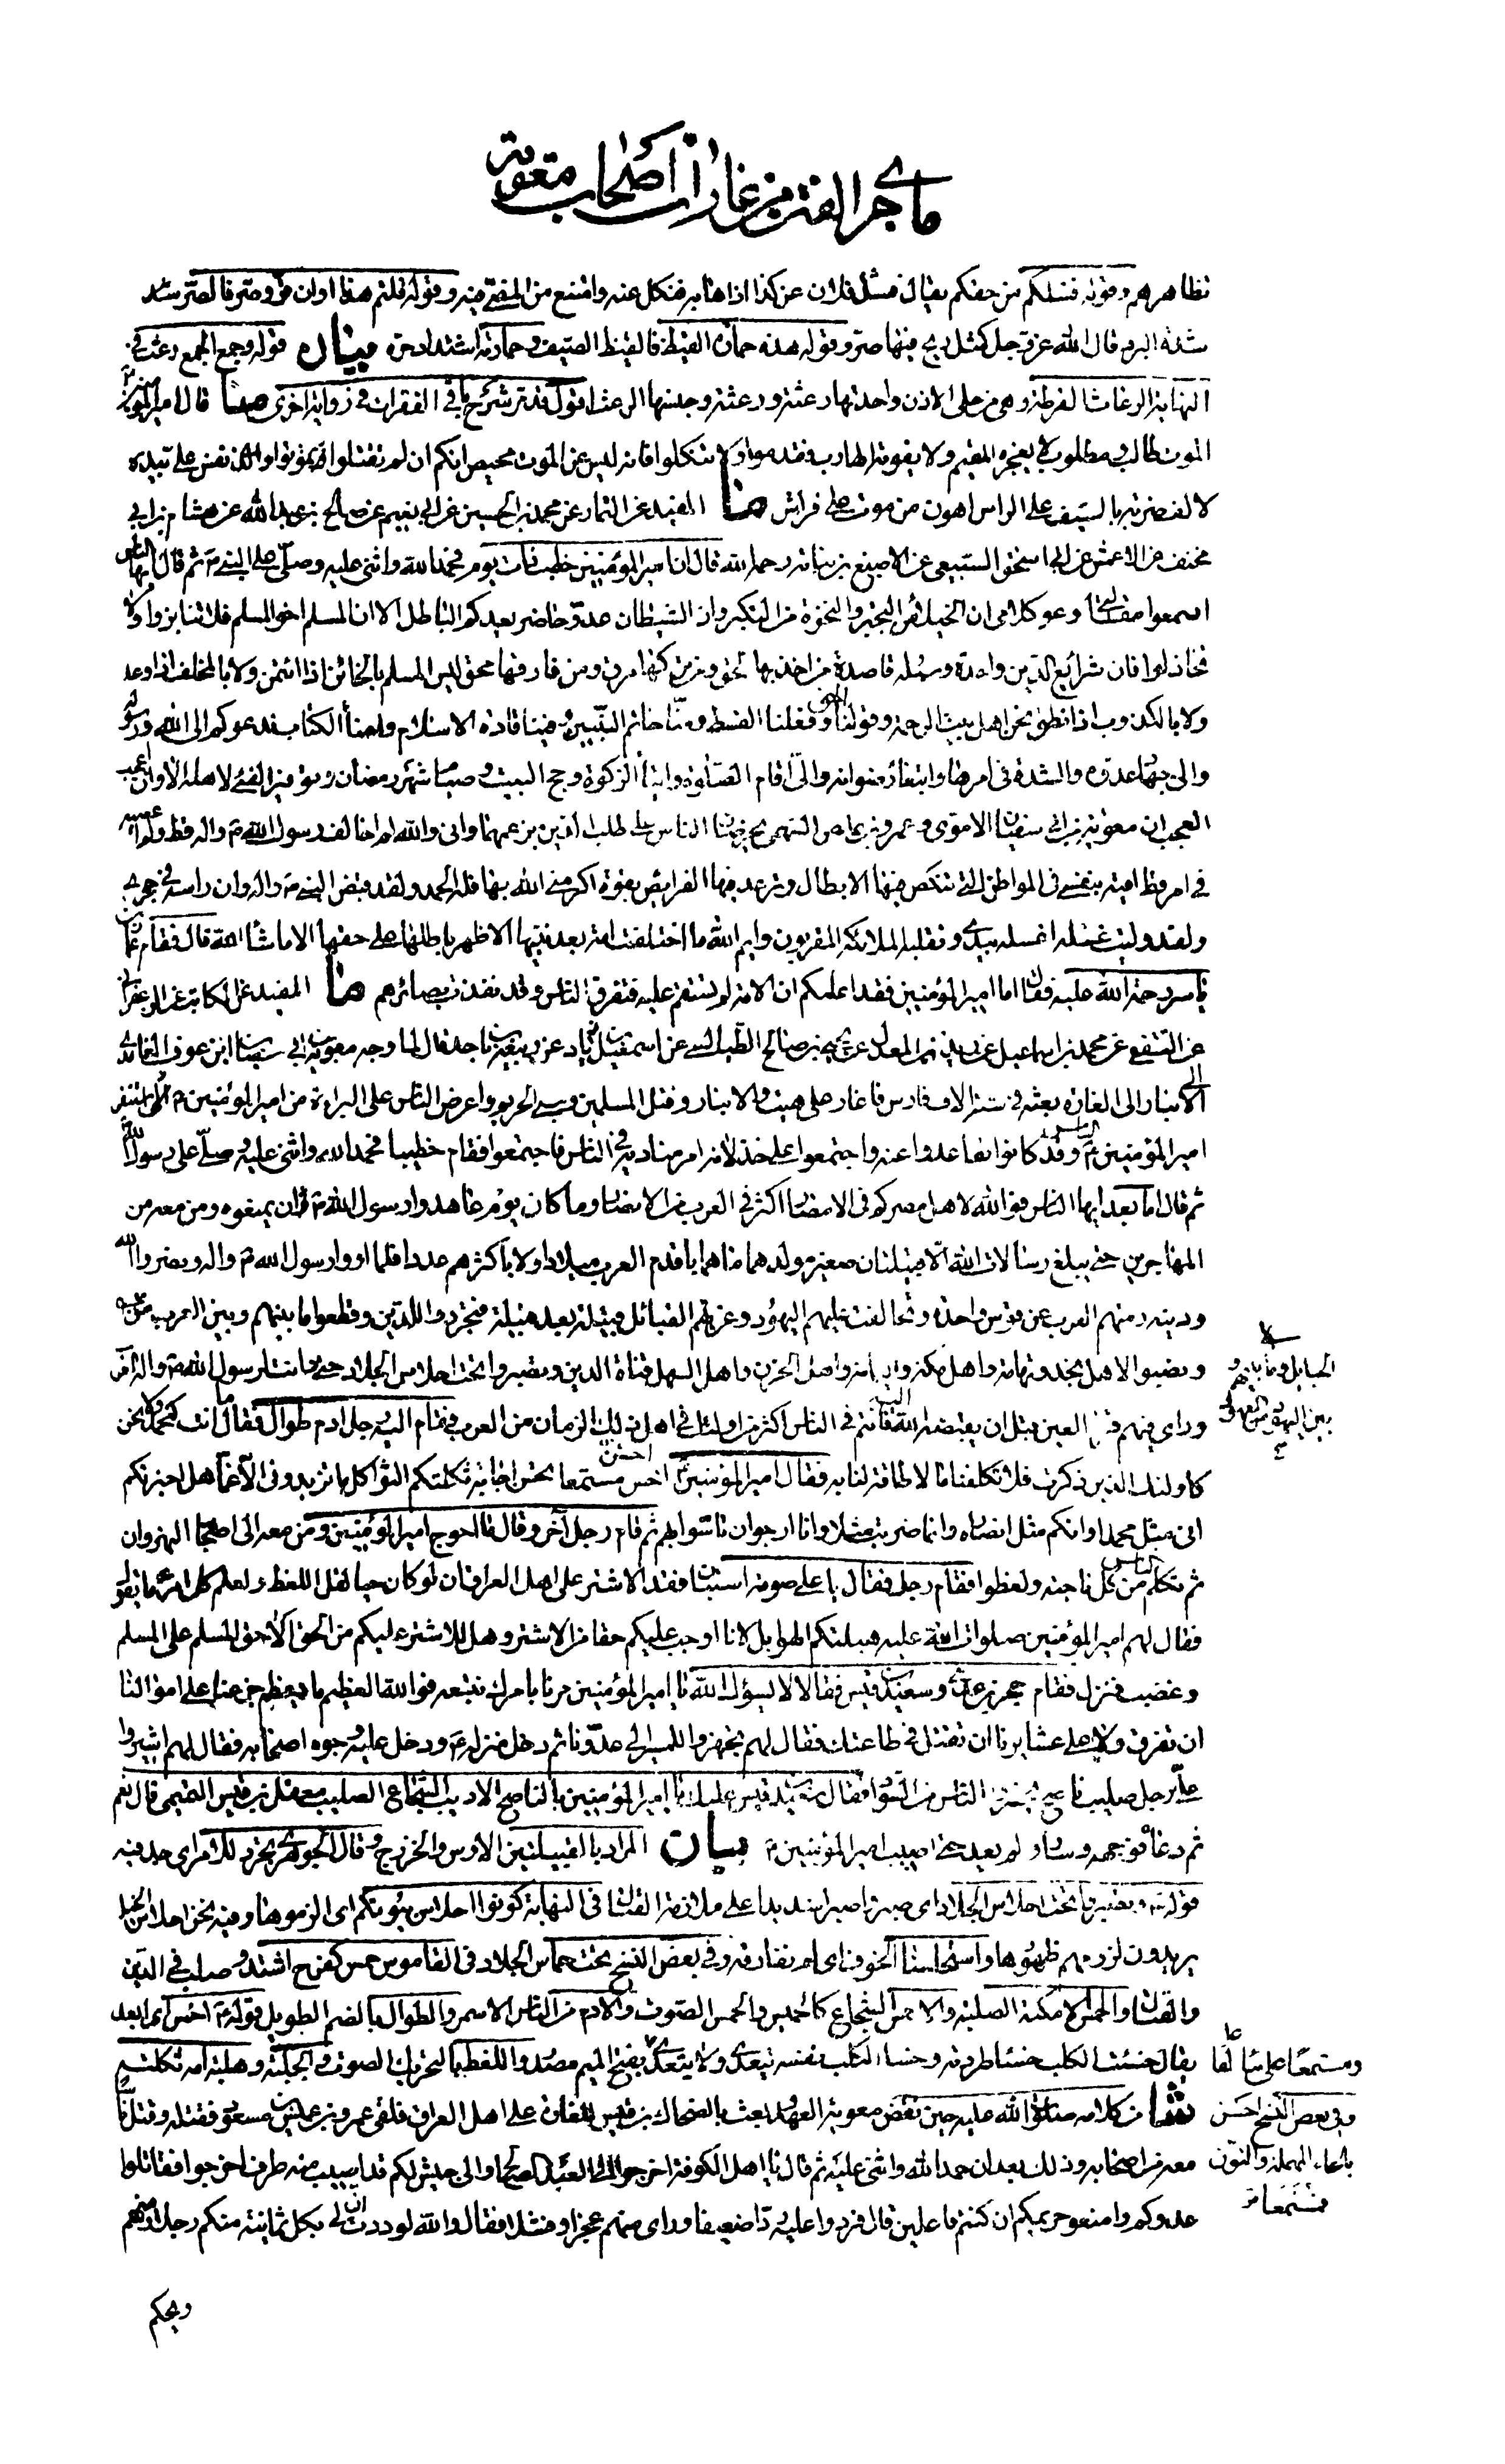 ما جرى الفتن من غارات أصحاب معوية
تظاهرهم وقوله فشلكم عن حقكم يقال فشل فلان عن كذا اذا هابه فنكل عنه وامتنع من المضي فيه وقوله قلتم هذا اوان قر وصر فالصر شد
شدة البرد قال الله عز وجل كمثل ريح فيها صر وقوله هذه حمارة القيظ فالقيظ الصيف وحمارته اشتداد حره بيان قوله وجمع الجمع رعث في
النهاية الرعاث القرطة وهي من حلي الاذن واحدتها رعثة ورعثة وجنسها الرعث اقول قد مر شرح باقي الفقرات في رواية اخرى قال امير المؤمنين
الموت طالب ومطلوب لا يعجزه المقيم ولا يفوته الهارب فقدموا ولا تتكلوا فانه ليس عن الموت محيص انكم ان لم تقتلوا تموتوا والذي نفس علي بيده
لالف ضربة بالسيف على الراس اهون من موت على فراش ما المفيد عن التمار عن محمد بن الحسين عن ابي نعيم عن صالح بن عبد الله عن هشام بن ابي
مخنف عن الاعمش عن ابي اسحق السبيعي عن الاصبغ بن نباتة رحمه الله قال ان امير المؤمنين خطب ذات يوم فحمد الله واثنى عليه وصلى على النبي ص ثم قال ايها الناس
اسمعوا مقالتي وعوا كلامي ان الخيلاء من التجبر والنخوة من التكبر وان الشيطان عدو حاضر يعدكم الباطل الا ان المسلم اخو المسلم فلا تنابزوا ولا
تخاذلوا فان شرائع الدين واحدة وسبله قاصدة من اخذ بها لحق ومن تركها مرق ومن فارقها محق ليس المسلم بالخائن اذا ائتمن ولا بالمخلف اذا وعد
ولا بالكذوب اذا نطق نحن اهل بيت الرحمة وقولنا الحق وفعلنا القسط ومنا خاتم النبيين وفينا قادة الاسلام وامناء الكتاب ندعوكم الى الله ورسوله
والى جهاد عدوه والشدة في امره وابتغاء رضوانه والى اقام الصلوة وايتاء الزكوة وحج البيت وصيام شهر رمضان وتوفير الفئ لاهله الا وان اعجب
العجب ان معوية بن ابي سفيان الاموي وعمرو بن العاص السهمي يحرضان الناس على طلب الدين بزعمهما واني والله لم اخالف رسول الله ص واله قط ولم اعصه
في امر قط اقيه بنفسي في المواطن التي تنكص فيها الابطال وترعد فيها الفرائص بقوة اكرمني الله بها فله الحمد ولقد قبض النبي ص واله وان راسه في حجري
ولقد وليت غسله اغسله بيدي وتقلبه الملائكة المقربون وايم الله ما اختلفت امة بعد نبيها الا ظهر باطلها على حقها الا ما شاء الله قال فقام عمار بن
ياسر رحمة الله عليه فقال اما امير المؤمنين فقد اعلمكم ان الامة لم تستقم عليه فتفرق الناس وقد نفذت بصائرهم ما المفيد عن الكاتب عن الزعفراني
عن الثقفي عن محمد بن اسماعيل عن زيد بن المعدل عن يحيى بن صالح الطيالسي عن اسمعيل بن زياد عن ربيعة بن ناجد قال لما وجه معوية بن ابي سفيان ابن عوف الغامدي
الى الانبار الى الغارة بعثه في ستة الاف فارس فاغار على هيت والانبار وقتل المسلمين وسبى الحريم واعرض الناس على البراءة من امير المؤمنين استنفر
امير المؤمنين ع الناس وقد كانوا تقاعدوا عنه واجتمعوا على خذلانه امر مناديه في الناس فاجتمعوا فقام خطيبا فحمد الله واثنى عليه وصلى على رسول الله
ثم قال اما بعد ايها الناس فوالله لاهل مصركم في الامصار اكثر في العرب من الانصار وما كان يوم عاهدوا رسول الله ص ان يمنعوه ومن معه من
المهاجرين حتى يبلغ رسالات الله الا قبيلتان صغير مولدهما ما هما باقدم العرب ميلادا ولا باكثرهم عددا فلما اووا رسول الله ص واله ونصروا الله
ودينه رمتهم العرب عن قوس واحدة وتحالفت عليهم اليهود وغزتهم القبائل قبيلة بعد قبيلة فتجردوا للدين وقطعوا ما بينهم وبين العرب من
الحبايل وما بينهم
وبين اليهود من العهود
ونصبوا لاهل نجد وتهامة واهل مكة واليمامة واهل الحزن واهل السهل قناة الدين وتصبروا تحت احلاس الجلاد حتى دانت لرسول الله ص واله العرب
وراى فيهم قرة العين قبل ان يقبضه الله اليه فانتم في الناس اكثر من اولئك في اهل ذلك الزمان من العرب فقام اليه رجل ادم طوال فقال ما انت كمحمد ولا نحن
كاولئك الذين ذكرت فلا تكلفنا ما لا طاقة لنا به فقال امير المؤمنين ع احسن مستمعا تحسن اجابة ثكلتكم الثواكل ما تزيدوني الا غما هل اخبرتكم
اني مثل محمد او انكم مثل انصاره وانما ضربت مثلا وانا ارجو ان تاسوا بهم ثم قام رجل اخر وقال ما احوج امير المؤمنين ومن معه الى اصحاب النهروان
ثم تكلم الناس من كل ناحية ولغطوا فقام رجل فقال باعلى صوته استبان فقد الاشتر على اهل العراق ان لو كان حيا لقل اللغط ولعلم كل امرئ ما يقول
فقال لهم امير المؤمنين صلوات الله عليه هبلتكم الهوابل لانا اوجب عليكم حقا من الاشتر وهل للاشتر عليكم من الحق الا حق المسلم على المسلم
وغضب فنزل فقام حجر بن عدي وسعيد بن قيس فقالا لا يسؤك الله يا امير المؤمنين مرنا بامرك نتبعه فوالله العظيم ما يعظم جزعنا على اموالنا
ان تفرق ولا على عشايرنا ان تقتل في طاعتك فقال لهم تجهزوا للمسير الى عدونا ثم دخل منزله ع ودخل عليه وجوه اصحابه فقال لهم اشيروا
علي برجل صليب ناصح يحشر الناس من السواد فقال سعيد بن قيس عليك يا امير المؤمنين بالناصح الاديب الشجاع الصليب معقل بن قيس التميمي قال نعم
ثم دعاه فوجهه وسار ولم يعد حتى اصيب امير المؤمنين ع بيان المراد بالقبيلتين الاوس والخزرج وقال الجوهري تجرد للامر اي جد فيه
قوله ع وتصبروا تحت احلاس الجلاد اي صبروا صبرا شديدا على ملازمة القتال في النهاية كونوا احلاس بيوتكم اي الزموها ومنه نحن احلاس الخيل
يريدون لزومهم ظهورها واستحلسنا الخوف اي لم نفارقه وفي بعض النسخ تحت حماس الجلاد في القاموس حمس كفرح اشتد وصلب في الدين
والقتال والحمس الامكنة الصلبة والاحمس الشجاع كالحميس والحمس الصوت والادم من الناس الاسمر والطوال بالضم الطويل قوله ع اخس اي ابعد
يقال خسئت الكلب خسئا طردته وخسا الكلب بنفسه يتعدى ولا يتعدى بفتح الميم مصدر واللغط بالتحريك الصوت والجلبة وهبلته امه ثكلته
ومستمعا على بناء الفاعل
وفي بعض النسخ احسن
بالحاء المهملة والنون
فمستمعا
شا من كلامه صلوات الله عليه حين نقض معوية العهد وبعث بالضحاك بن قيس للغارة على اهل العراق فلقي عمرو بن عميس بن مسعود فقتله وقتل ناسا
معه من اصحابه وذلك بعد ان حمد الله واثنى عليه ثم قال يا اهل الكوفة اخرجوا الى العبد الصالح والى جيش لكم قد اصيب منه طرف اخرجوا فقاتلوا
عدوكم وامنعوا حريمكم ان كنتم فاعلين قال فردوا عليه ردا ضعيفا وراى منهم عجزا وفشلا فقال والله لوددت ان لي بكل ثمانية منكم رجلا منهم
ويحكم